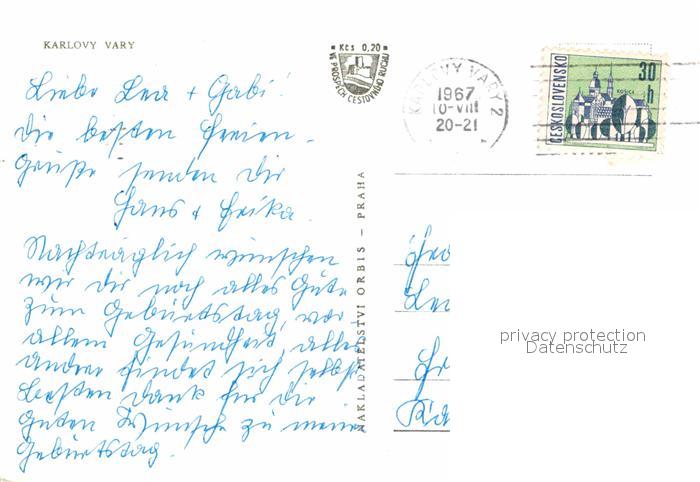 KARLOVY VARY
Liebe Lea + Gabi!
Die besten Ferien-
grüße senden Dir
Hans + Erika.
Nachträglich wünschen
wir Dir noch alles Gute
zum Geburtstag, vor
allem Gesundheit, alles
andere findet sich selbst
Besten Dank für die
guten Wünsche zu meinem
Geburtstag.
NAKLADATELSTVÍ ORBIS – PRAHA
Kčs 0,20
VE PROSPĚCH CESTOVNÍHO RUCHU
KARLOVY VARY 2
1967
10-VIII
20-21
ČESKOSLOVENSKO
30 h
KOŠICE
Lea
privacy protection
Datenschutz